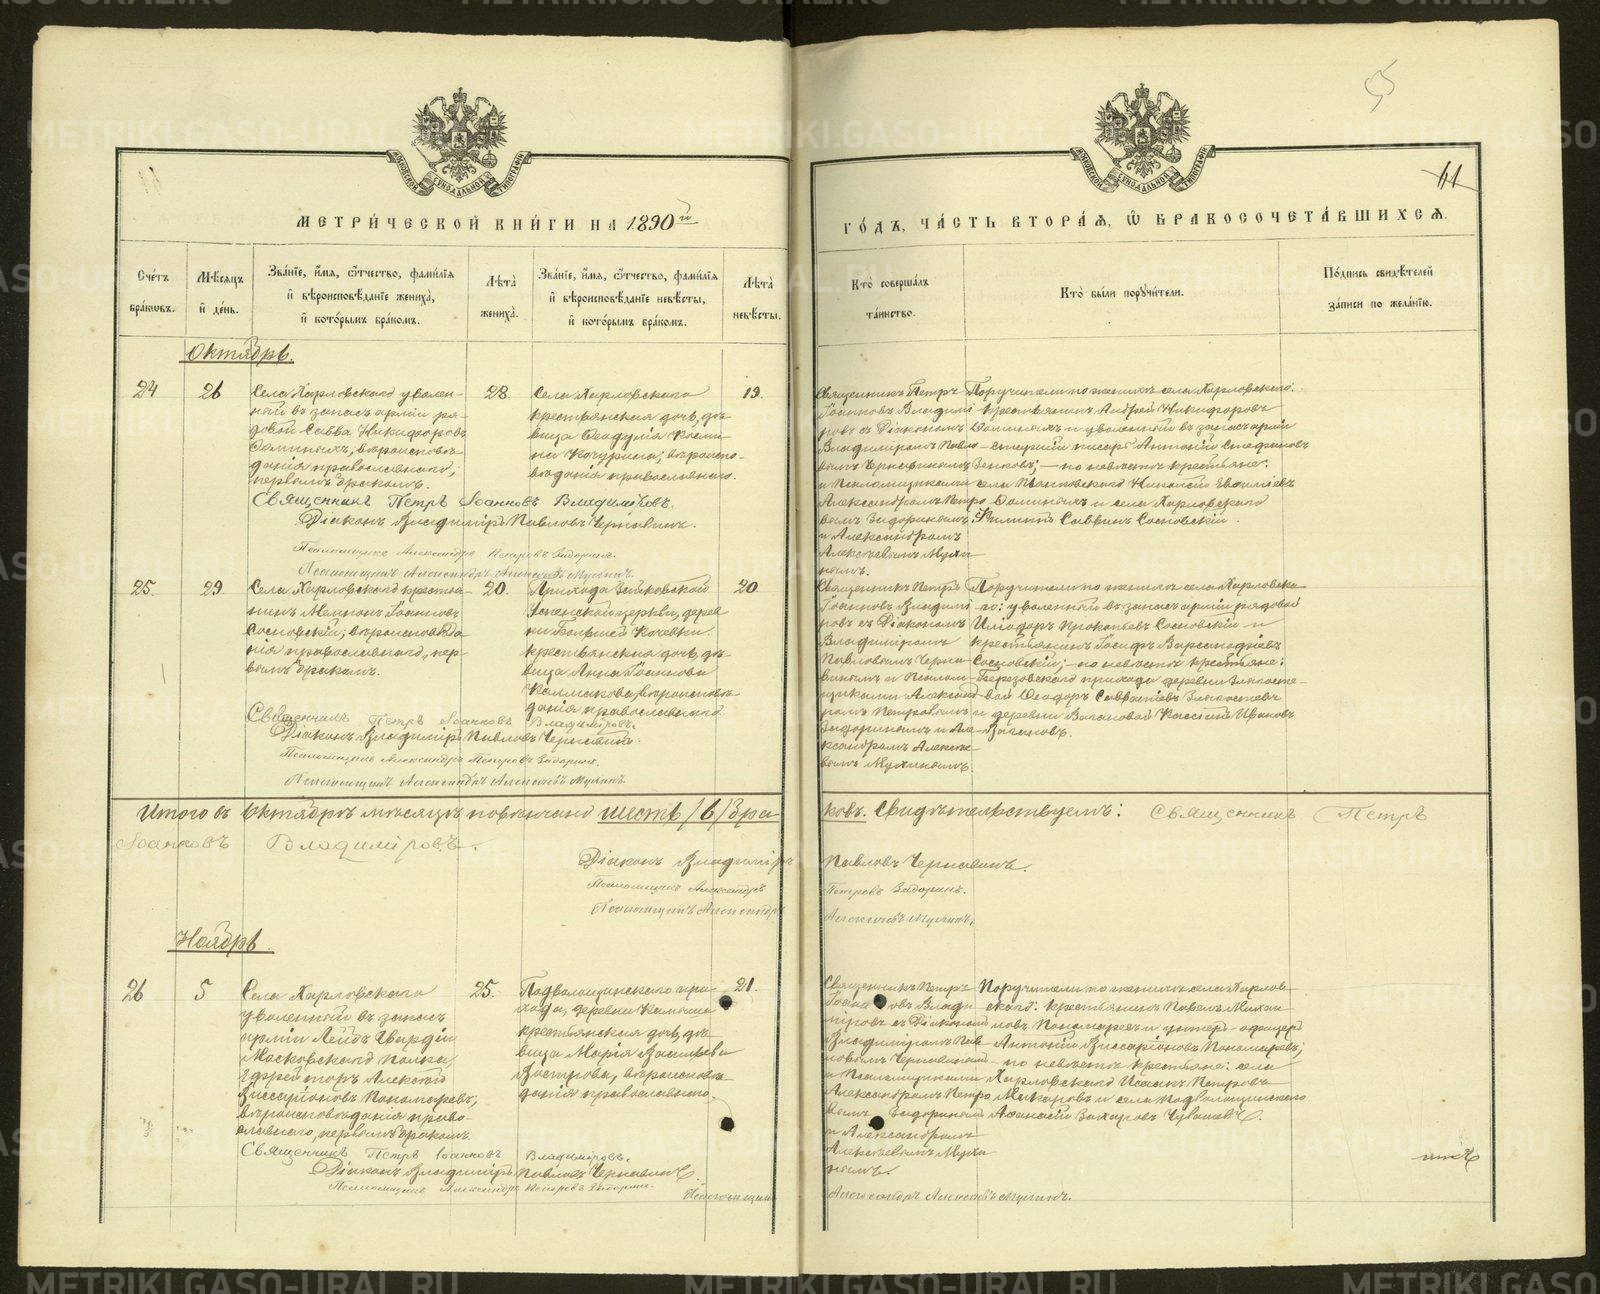 55
61
МЕТРИ́ЧЕСКОЙ КНИ́ГИ НА 1890й
ГО́ДЪ, ЧА́СТЬ ВТОРА́Я, Ѽ БРАКОСОЧЕТА́ВШИХСЯ.
Сче́тъ бра́ковъ.
Мѣ́сяцъ и҆ де́нь.
Зва́нїе, и҆́мя, ѻ҆́тчество, фами́лїя и҆ вѣроисповѣ́данїе жениха̀, и҆ кото́рымъ бра́комъ.
Лѣта̀ жениха̀.
Зва́нїе, и҆́мя, ѻ҆́тчество, фами́лїя и҆ вѣроисповѣ́данїе невѣ́сты, и҆ кото́рымъ бра́комъ.
Лѣта̀ невѣ́сты.
Кто̀ соверша́лъ та́инство.
Кто̀ бы́ли поручи́тели.
По́дпись свидѣ́телей за́писи по жела́нїю.
Октябрь.
24
26
Села Харловскаго уволен-
ный въ запасъ арміи ря-
довой Савва Никифоровъ
Ѳоминыхъ, вѣроисповѣ-
данія православнаго,
первымъ бракомъ.
28.
Села Харловскаго
крестьянская дочь, дѣ-
вица Ѳеодулія Косми-
на Кочурина, вѣроиспо-
вѣданія православнаго.
19.
Священникъ Петръ
Іоанновъ Владимі-
ровъ съ Діакономъ
Владиміромъ Павло-
вымъ Чернавинымъ
и Псаломщиками
Александромъ Петро-
вымъ Задоринымъ
и Александромъ
Алексѣевымъ Мухи-
нымъ.
Поручители по женихѣ села Харловскаго:
крестьянинъ Андрей Никифоровъ
Ѳоминыхъ и уволенный въ запасъ арміи
старшій писарь Антоній Стефановъ
Зенковъ; — по невѣстѣ крестьяне:
села Николай Евѳиміевъ
Ѳоминыхъ и села Харловскаго
Филиппъ Саввинъ Сосновскій.
Священникъ Петръ Іоанновъ Владиміровъ.
Діаконъ Владиміръ Павловъ Чернавинъ.
Псаломщикъ Александръ Петровъ Задоринъ.
Псаломщикъ Александръ Алексѣевъ Мухинъ.
25.
29.
Села Харловскаго крестья-
нинъ Мемнонъ Іоанновъ
Сосновскій, вѣроисповѣда-
нія православнаго, пер-
вымъ бракомъ.
20.
Прихода Зайковской
Успенской церкви, дерев-
ни Большей Кочевки
крестьянская дочь, дѣ-
вица Анна Іоаннова
Калмакова, вѣроисповѣ-
данія православнаго.
20.
Священникъ Петръ
Іоанновъ Владимі-
ровъ съ Діакономъ
Владиміромъ
Павловымъ Черна-
винымъ и Псалом-
щиками Александ-
ромъ Петровымъ
Задоринымъ и Але-
ксандромъ Алексѣе-
вымъ Мухинымъ.
Поручители по женихѣ села Харловска-
го: уволенный въ запасъ арміи рядовой
Иліодоръ Прокопьевъ Сосновскій и
крестьянинъ Іосифъ Варсонофіевъ
Сосновскій; — по невѣстѣ крестьяне:
Березовскаго прихода деревни
Ѳеодоръ Савватіевъ
и деревни Вагановой Кассіянъ Ивановъ
Вагановъ.
Священникъ Петръ Іоанновъ Владиміровъ.
Діаконъ Владиміръ Павловъ Чернавинъ.
Псаломщикъ Александръ Петровъ Задоринъ.
Псаломщикъ Александръ Алексѣевъ Мухинъ.
Итого въ Октябрѣ мѣсяцѣ повѣнчано шесть /6/ браковъ. Свидѣтельствуемъ: Священникъ Петръ
Іоанновъ Владиміровъ.
Діаконъ Владиміръ Павловъ Чернавинъ.
Псаломщикъ Александръ Петровъ Задоринъ.
Псаломщикъ Александръ Алексѣевъ Мухинъ.
Ноябрь.
26
5
Села Харловскаго
уволенный въ запасъ
арміи Лейбъ Гвардіи
Московскаго Полка,
Ефрейторъ Алексій
Виссаріоновъ Пономаревъ,
вѣроисповѣданія право-
славнаго, первымъ бракомъ.
25.
Подволошинскаго при-
хода, деревни
крестьянская дочь, дѣ-
вица Марія Васильева
Вострова, вѣроисповѣ-
данія православнаго.
21.
Священникъ Петръ
Іоанновъ Влади-
міровъ съ Діакономъ
Владиміромъ Пав-
ловымъ Чернавинымъ
и Псаломщиками
Александромъ Петро-
вымъ Задоринымъ
и Александромъ
Алексѣевымъ Мухи-
нымъ.
Поручители по женихѣ села Харлов-
скаго: крестьянинъ Павелъ Михаи-
ловъ Пономаревъ и унтеръ-офицеръ
Антоній Виссаріоновъ Пономаревъ;
по невѣстѣ крестьяне: села
Харловскаго Исаакъ Петровъ
Макаровъ и села Подволошинскаго
Аѳанасій Захаровъ Чувашевъ.
Священникъ Петръ Іоанновъ Владиміровъ.
Діаконъ Владиміръ Павловъ Чернавинъ.
Псаломщикъ Александръ Петровъ Задоринъ.
Псаломщикъ Александръ Алексѣевъ Мухинъ.
METRIKI.GASO-URAL.RU